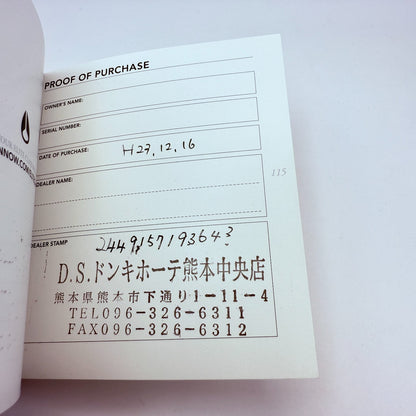 PROOF OF PURCHASE
OWNER'S NAME:
SERIAL NUMBER:
DATE OF PURCHASE: H27.12.16
DEALER NAME:
115
DEALER STAMP
2449157193643
D.S.ドンキホーテ熊本中央店
熊本県熊本市下通り1-11-4
TEL096-326-6311
FAX096-326-6312